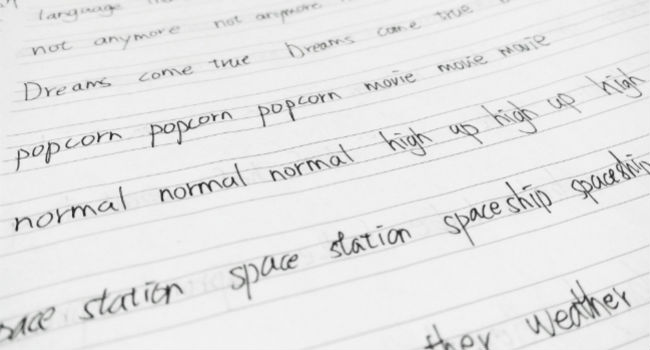 language
not anymore not anymore
Dreams come true Dreams come true
popcorn popcorn popcorn movie movie movie
normal normal normal high up high up high
space station space station spaceship spaceship
ther weather